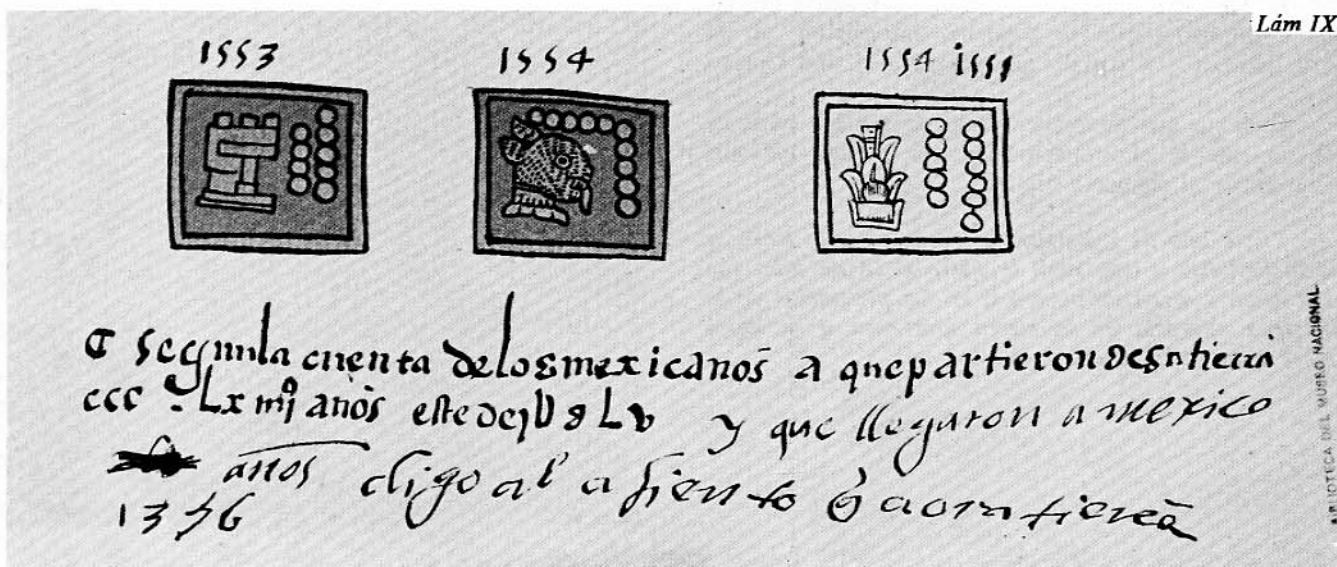 Lám IX
1553 1554 1554 1555
segun la cuenta de los mexicanos a que partieron de su tierra
ccc y Lx iiij años este de j U d L v y que llegaron a mexico
años digo al asiento q̄ aora tienen
13
BIBLIOTECA DEL MUSEO NACIONAL